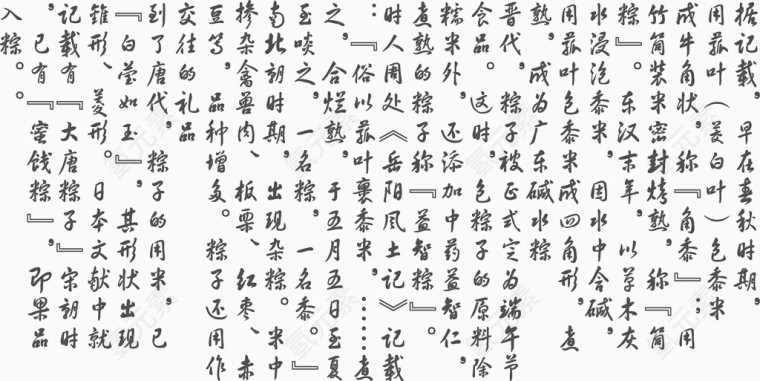 据记载，早在春秋时期，
用菰叶（茭白叶）包黍米
成牛角状，称『角黍』；用
竹筒装米密封烤熟，称『筒
粽』。东汉末年，以草木灰
水浸泡黍米，因水中含碱，
用菰叶包黍米成四角形，煮
熟，成为广东碱水粽
晋代，粽子被正式定为端午节
食品。这时，包粽子的原料除
糯米外，还添加中药益智仁，
煮熟的粽子称『益智粽』。
时人周处《岳阳风土记》记载
：『俗以菰叶裹黍米，……煮
之，合烂熟，于五月五日至夏
至啖之，一名粽，一名黍。』
南北朝时期，出现杂粽。米中
掺杂禽兽肉、板栗、红枣、赤
豆等，品种增多。粽子还用作
交往的礼品
到了唐代，粽子的用米，已
『白莹如玉』，其形状出现
锥形、菱形。日本文献中就
记载有『大唐粽子』宋朝时
，已有『蜜饯粽』，即果品
入粽。